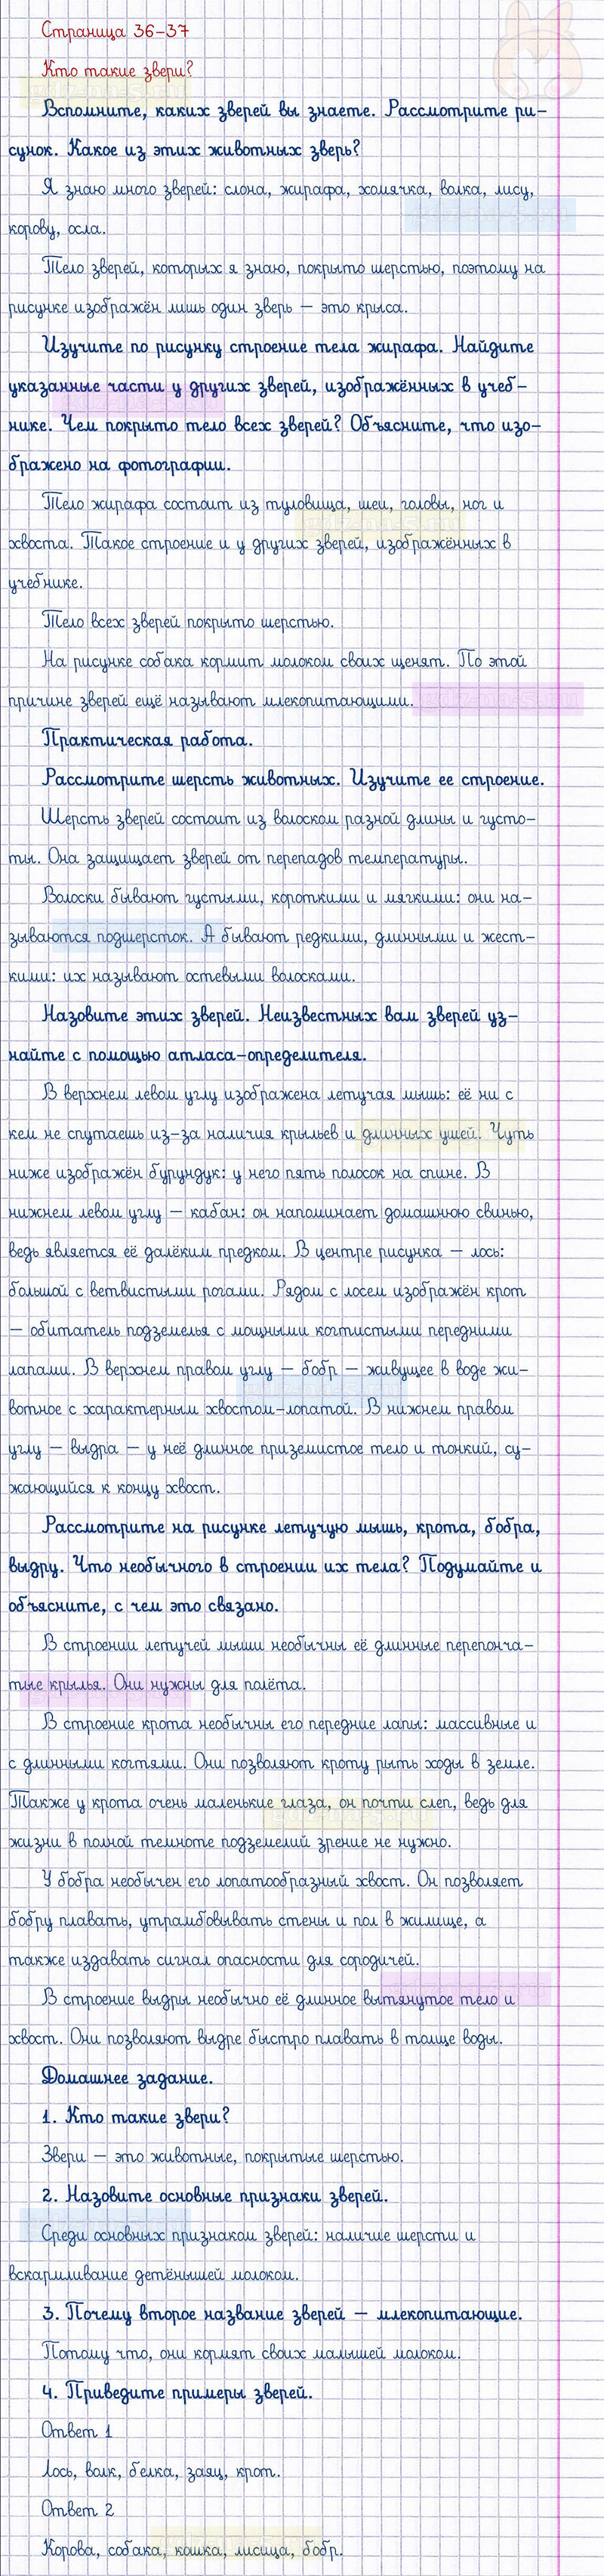 Страница 36-37
Кто такие звери?
Вспомните, каких зверей вы знаете. Рассмотрите ри-
сунок. Какое из этих животных зверь?
Я знаю много зверей: слона, жирафа, хомячка, волка, лису,
корову, осла.
Тело зверей, которых я знаю, покрыто шерстью, поэтому на
рисунке изображён лишь один зверь – это крыса.
Изучите по рисунку строение тела жирафа. Найдите
указанные части у других зверей, изображённых в учеб-
нике. Чем покрыто тело всех зверей? Объясните, что изо-
бражено на фотографии.
Тело жирафа состоит из туловища, шеи, головы, ног и
хвоста. Такое строение и у других зверей, изображённых в
учебнике.
Тело всех зверей покрыто шерстью.
На рисунке собака кормит молоком своих щенят. По этой
причине зверей ещё называют млекопитающими.
Практическая работа.
Рассмотрите шерсть животных. Изучите ее строение.
Шерсть зверей состоит из волосков разной длины и густо-
ты. Она защищает зверей от перепадов температуры.
Волоски бывают густыми, короткими и мягкими: они на-
зываются подшерсток. А бывают редкими, длинными и жест-
кими: их называют остевыми волосками.
Назовите этих зверей. Неизвестных вам зверей уз-
найте с помощью атласа-определителя.
В верхнем левом углу изображена летучая мышь: её ни с
кем не спутаешь из-за наличия крыльев и длинных ушей. Чуть
ниже изображён бурундук: у него пять полосок на спине. В
нижнем левом углу – кабан: он напоминает домашнюю свинью,
ведь является её далёким предком. В центре рисунка – лось:
большой с ветвистыми рогами. Рядом с лосем изображён крот
– обитатель подземелья с мощными когтистыми передними
лапами. В верхнем правом углу – бобр – живущее в воде жи-
вотное с характерным хвостом-лопатой. В нижнем правом
углу – выдра – у неё длинное приземистое тело и тонкий, су-
жающийся к концу хвост.
Рассмотрите на рисунке летучую мышь, крота, бобра,
выдру. Что необычного в строении их тела? Подумайте и
объясните, с чем это связано.
В строении летучей мыши необычны её длинные перепонча-
тые крылья. Они нужны для полёта.
В строение крота необычны его передние лапы: массивные и
с длинными когтями. Они позволяют кроту рыть ходы в земле.
Также у крота очень маленькие глаза, он почти слеп, ведь для
жизни в полной темноте подземелий зрение не нужно.
У бобра необычен его лопатообразный хвост. Он позволяет
бобру плавать, утрамбовывать стены и пол в жилище, а
также издавать сигнал опасности для сородичей.
В строение выдры необычно её длинное вытянутое тело и
хвост. Они позволяют выдре быстро плавать в толще воды.
Домашнее задание.
1. Кто такие звери?
Звери – это животные, покрытые шерстью.
2. Назовите основные признаки зверей.
Среди основных признаком зверей: наличие шерсти и
вскармливание детёнышей молоком.
3. Почему второе название зверей – млекопитающие.
Потому что, они кормят своих малышей молоком.
4. Приведите примеры зверей.
Ответ 1
Лось, волк, белка, заяц, крот.
Ответ 2
Корова, собака, кошка, лисица, бобр.